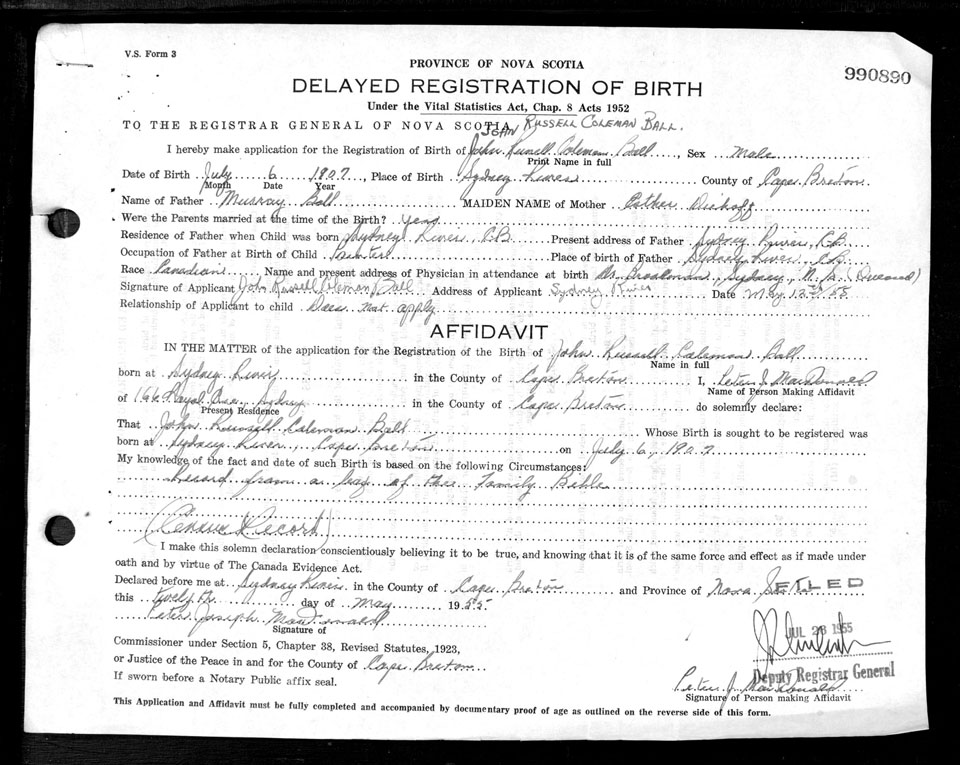 V.S. Form 3
PROVINCE OF NOVA SCOTIA
990890
DELAYED REGISTRATION OF BIRTH
Under the Vital Statistics Act, Chap. 8 Acts 1952
TO THE REGISTRAR GENERAL OF NOVA SCOTIA JOHN RUSSELL COLEMAN BALL.
I hereby make application for the Registration of Birth of John Russell Coleman Ball, Sex Male
Print Name in full
Date of Birth July 6 1907, Place of Birth Sydney River County of Cape Breton
Month Date Year
Name of Father Murray Ball MAIDEN NAME of Mother Esther
Were the Parents married at the time of the Birth? Yes
Residence of Father when Child was born Sydney River C.B. Present address of Father Sydney River, C.B.
Occupation of Father at Birth of Child Place of birth of Father Sydney River C.B.
Race Canadian Name and present address of Physician in attendance at birth Dr. Sydney, N.S. (Deceased)
Signature of Applicant John Russell Coleman Ball Address of Applicant Sydney River Date May 12th/55
Relationship of Applicant to child Does not apply
AFFIDAVIT
IN THE MATTER of the application for the Registration of the Birth of John Russell Coleman Ball
Name in full
born at Sydney River in the County of Cape Breton I, Peter J. MacDonald
Name of Person Making Affidavit
of 166 Royal Ave., Sydney in the County of Cape Breton do solemnly declare:
Present Residence
That John Russell Coleman Ball Whose Birth is sought to be registered was
born at Sydney River, Cape Breton on July 6, 1907
My knowledge of the fact and date of such Birth is based on the following Circumstances:
Record from a leaf of the Family Bible
(Census Record)
I make this solemn declaration conscientiously believing it to be true, and knowing that it is of the same force and effect as if made under
oath and by virtue of The Canada Evidence Act.
Declared before me at Sydney River in the County of Cape Breton and Province of Nova Scotia
FILED
this Twelfth day of May 1955
JUL 28 1955
Peter Joseph MacDonald
Signature of
Commissioner under Section 5, Chapter 38, Revised Statutes, 1923,
or Justice of the Peace in and for the County of Cape Breton
Deputy Registrar General
If sworn before a Notary Public affix seal.
Peter J. MacDonald
Signature of Person making Affidavit
This Application and Affidavit must be fully completed and accompanied by documentary proof of age as outlined on the reverse side of this form.